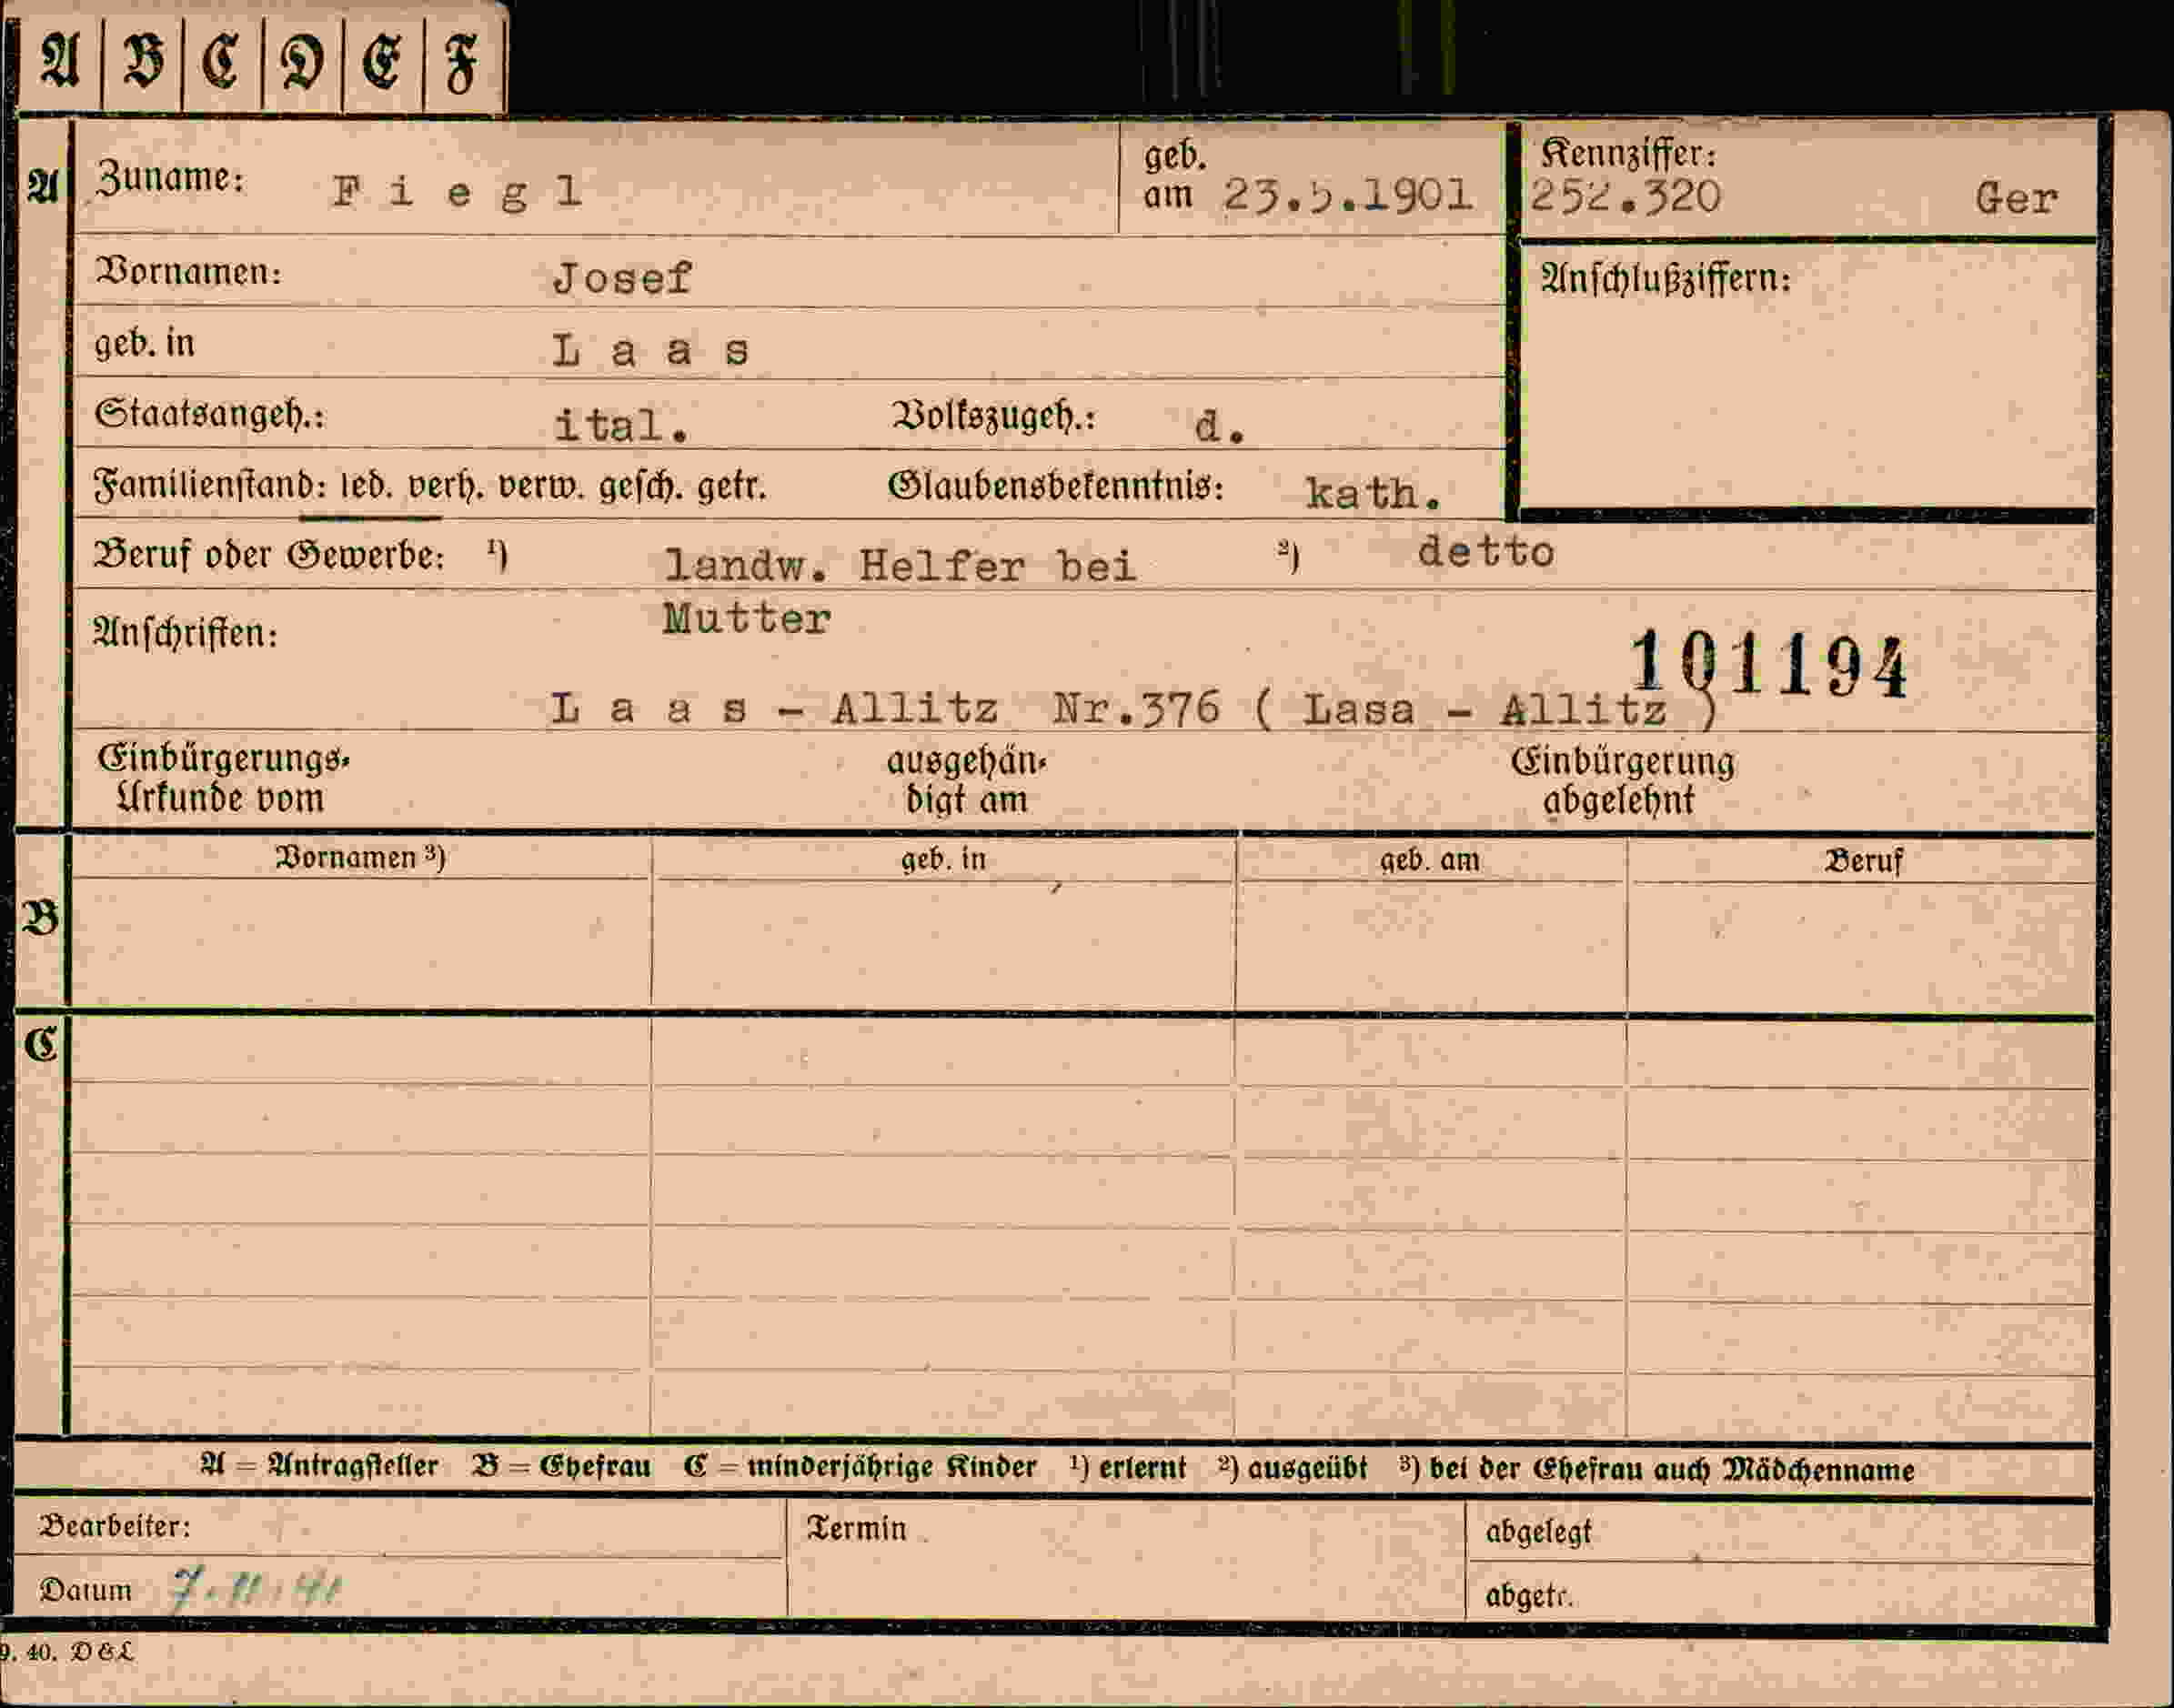 A B C D E F
A Zuname: Fiegl geb. am 23.5.1901 Kennziffer: 252.320 Ger
Vornamen: Josef Anschlußziffern:
geb. in Laas
Staatsangeh.: ital. Volkszugeh.: d.
Familienstand: led. verh. verw. gesch. getr. Glaubensbekenntnis: kath.
Beruf oder Gewerbe: ¹) landw. Helfer bei ²) detto
Mutter
Anschriften:
101194
Laas - Allitz Nr.376 ( Lasa - Allitz )
Einbürgerungs- ausgehän- Einbürgerung
Urkunde vom digt am abgelehnt
Vornamen ³) geb. in geb. am Beruf
B
C
A = Antragsteller B = Ehefrau C = minderjährige Kinder ¹) erlernt ²) ausgeübt ³) bei der Ehefrau auch Mädchenname
Bearbeiter: Termin abgelegt
Datum 7.11.41 abgetr.
9. 40. D&L